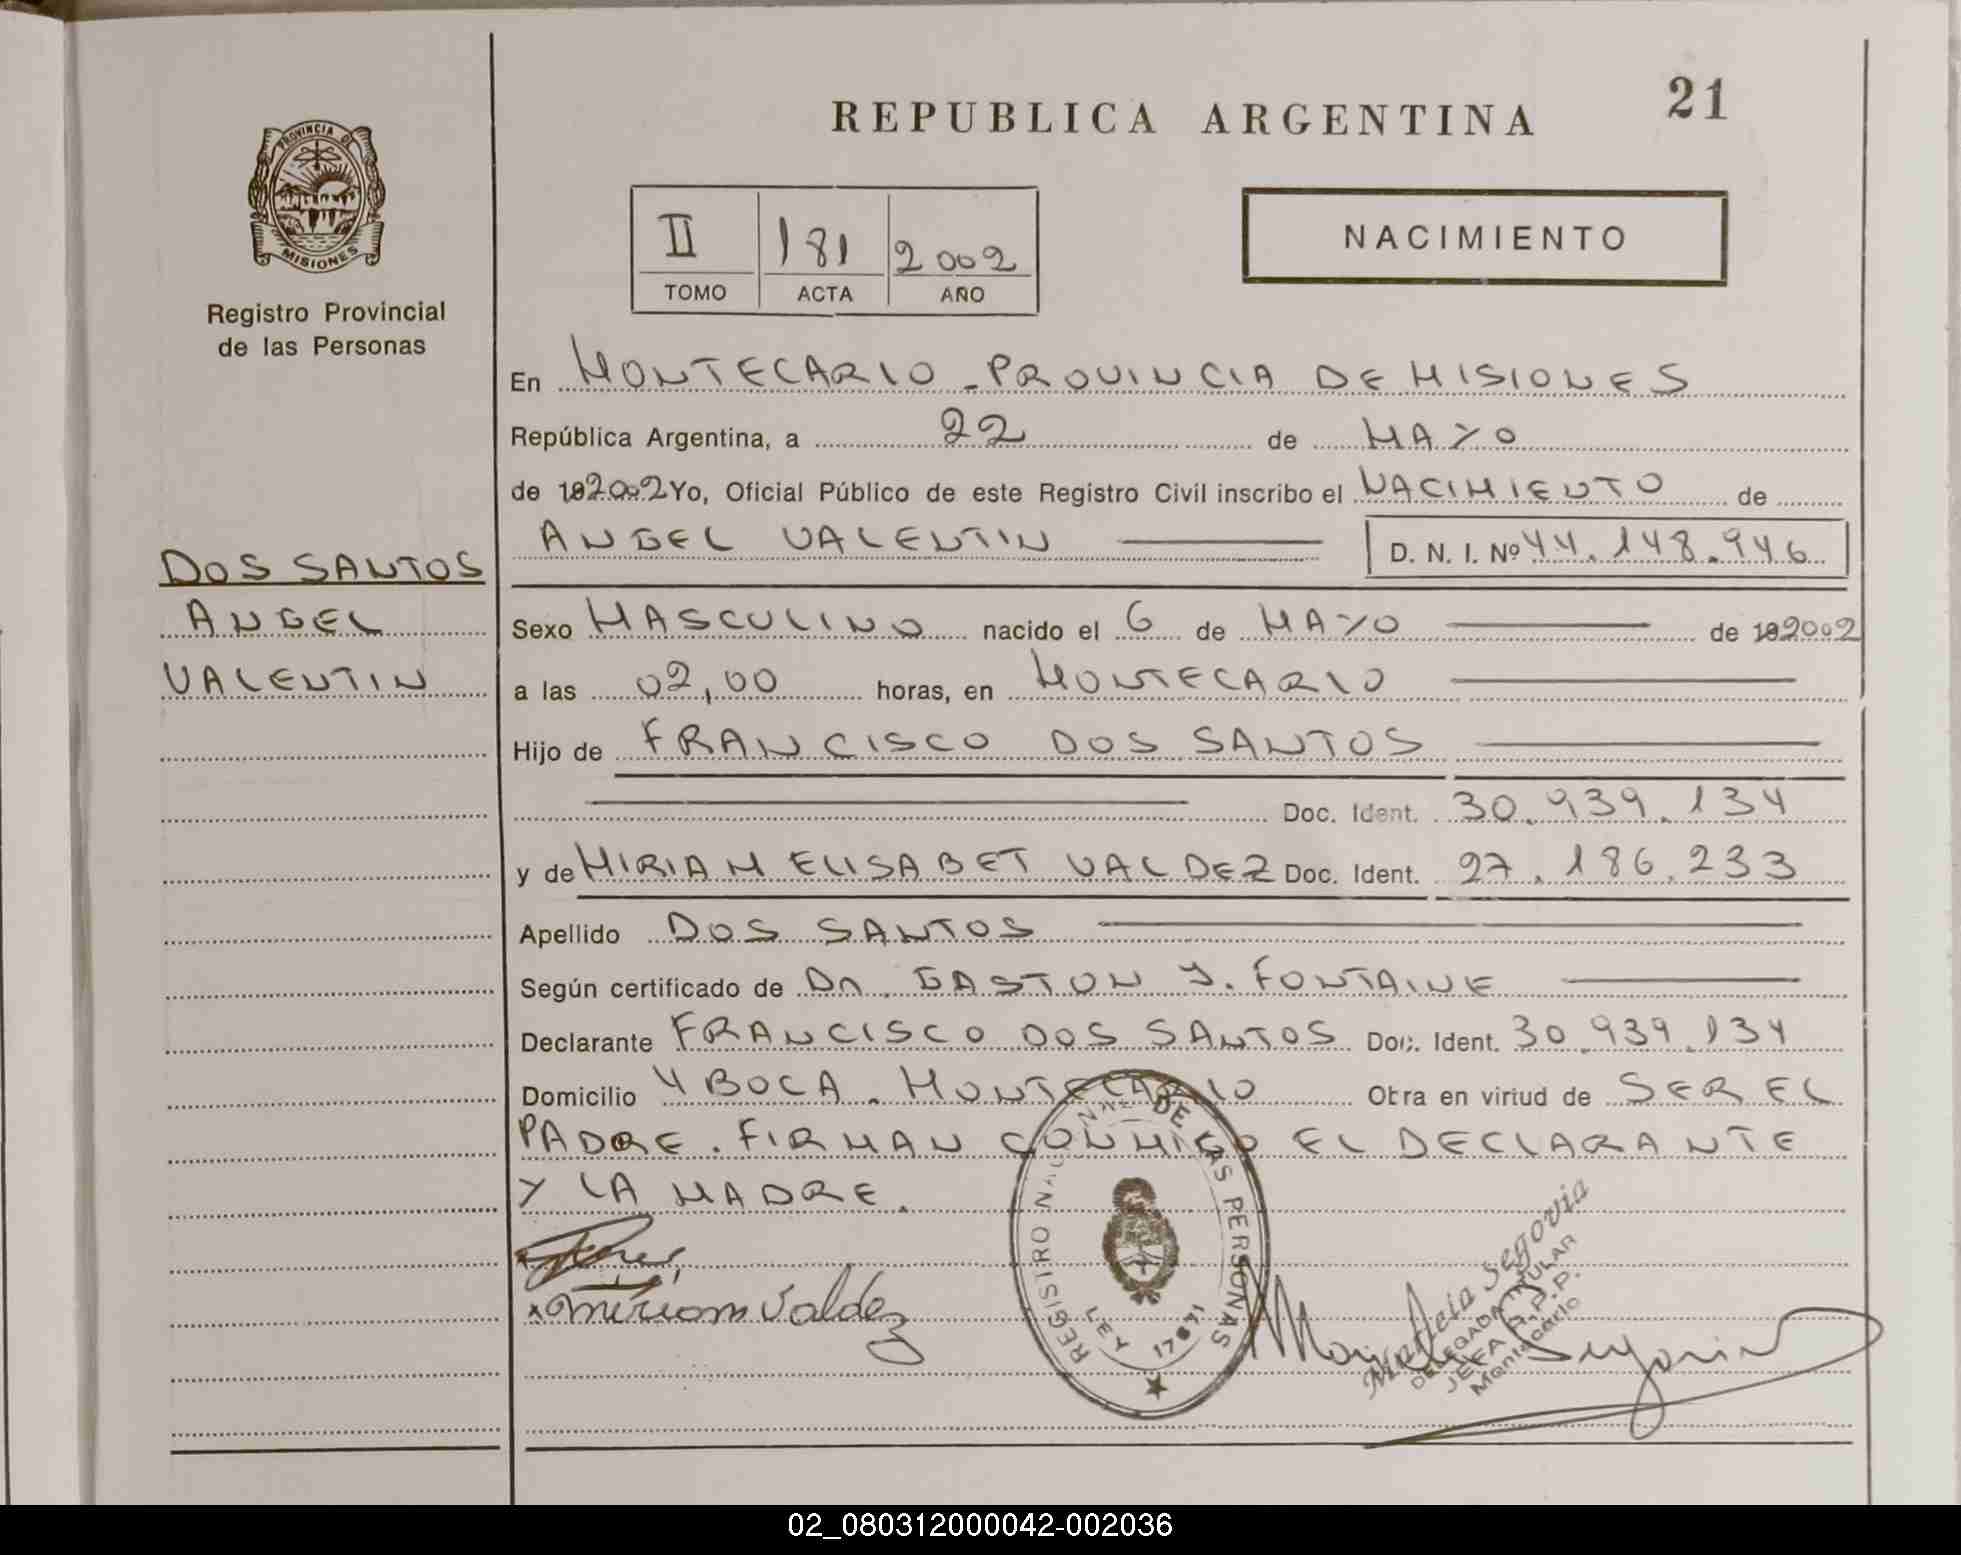 21
REPUBLICA ARGENTINA
PROVINCIA DE
MISIONES
Registro Provincial
de las Personas
II 181 2002
TOMO ACTA AÑO
NACIMIENTO
En MONTECARLO - PROVINCIA DE MISIONES
República Argentina, a 22 de MAYO
de 192002 Yo, Oficial Público de este Registro Civil inscribo el NACIMIENTO de
ANGEL VALENTIN D. N. I. Nº 44.148.946
DOS SANTOS
ANGEL
VALENTIN
Sexo MASCULINO nacido el 6 de MAYO de 192002
a las 02,00 horas, en MONTECARLO
Hijo de FRANCISCO DOS SANTOS
Doc. Ident. 30.939.134
y de MIRIAM ELISABET VALDEZ Doc. Ident. 27.186.233
Apellido DOS SANTOS
Según certificado de Dr. GASTON J. FONTAINE
Declarante FRANCISCO DOS SANTOS Doc. Ident. 30.939.134
Domicilio 4 BOCA. MONTECARLO Obra en virtud de SER EL
PADRE. FIRMAN CONMIGO EL DECLARANTE
Y LA MADRE.
x Miriam Valdez
REGISTRO NACIONAL DE LAS PERSONAS
LEY 17671
Segovia
DELEGADA TITULAR
JEFA R.P.P.
Montecarlo
02_080312000042-002036